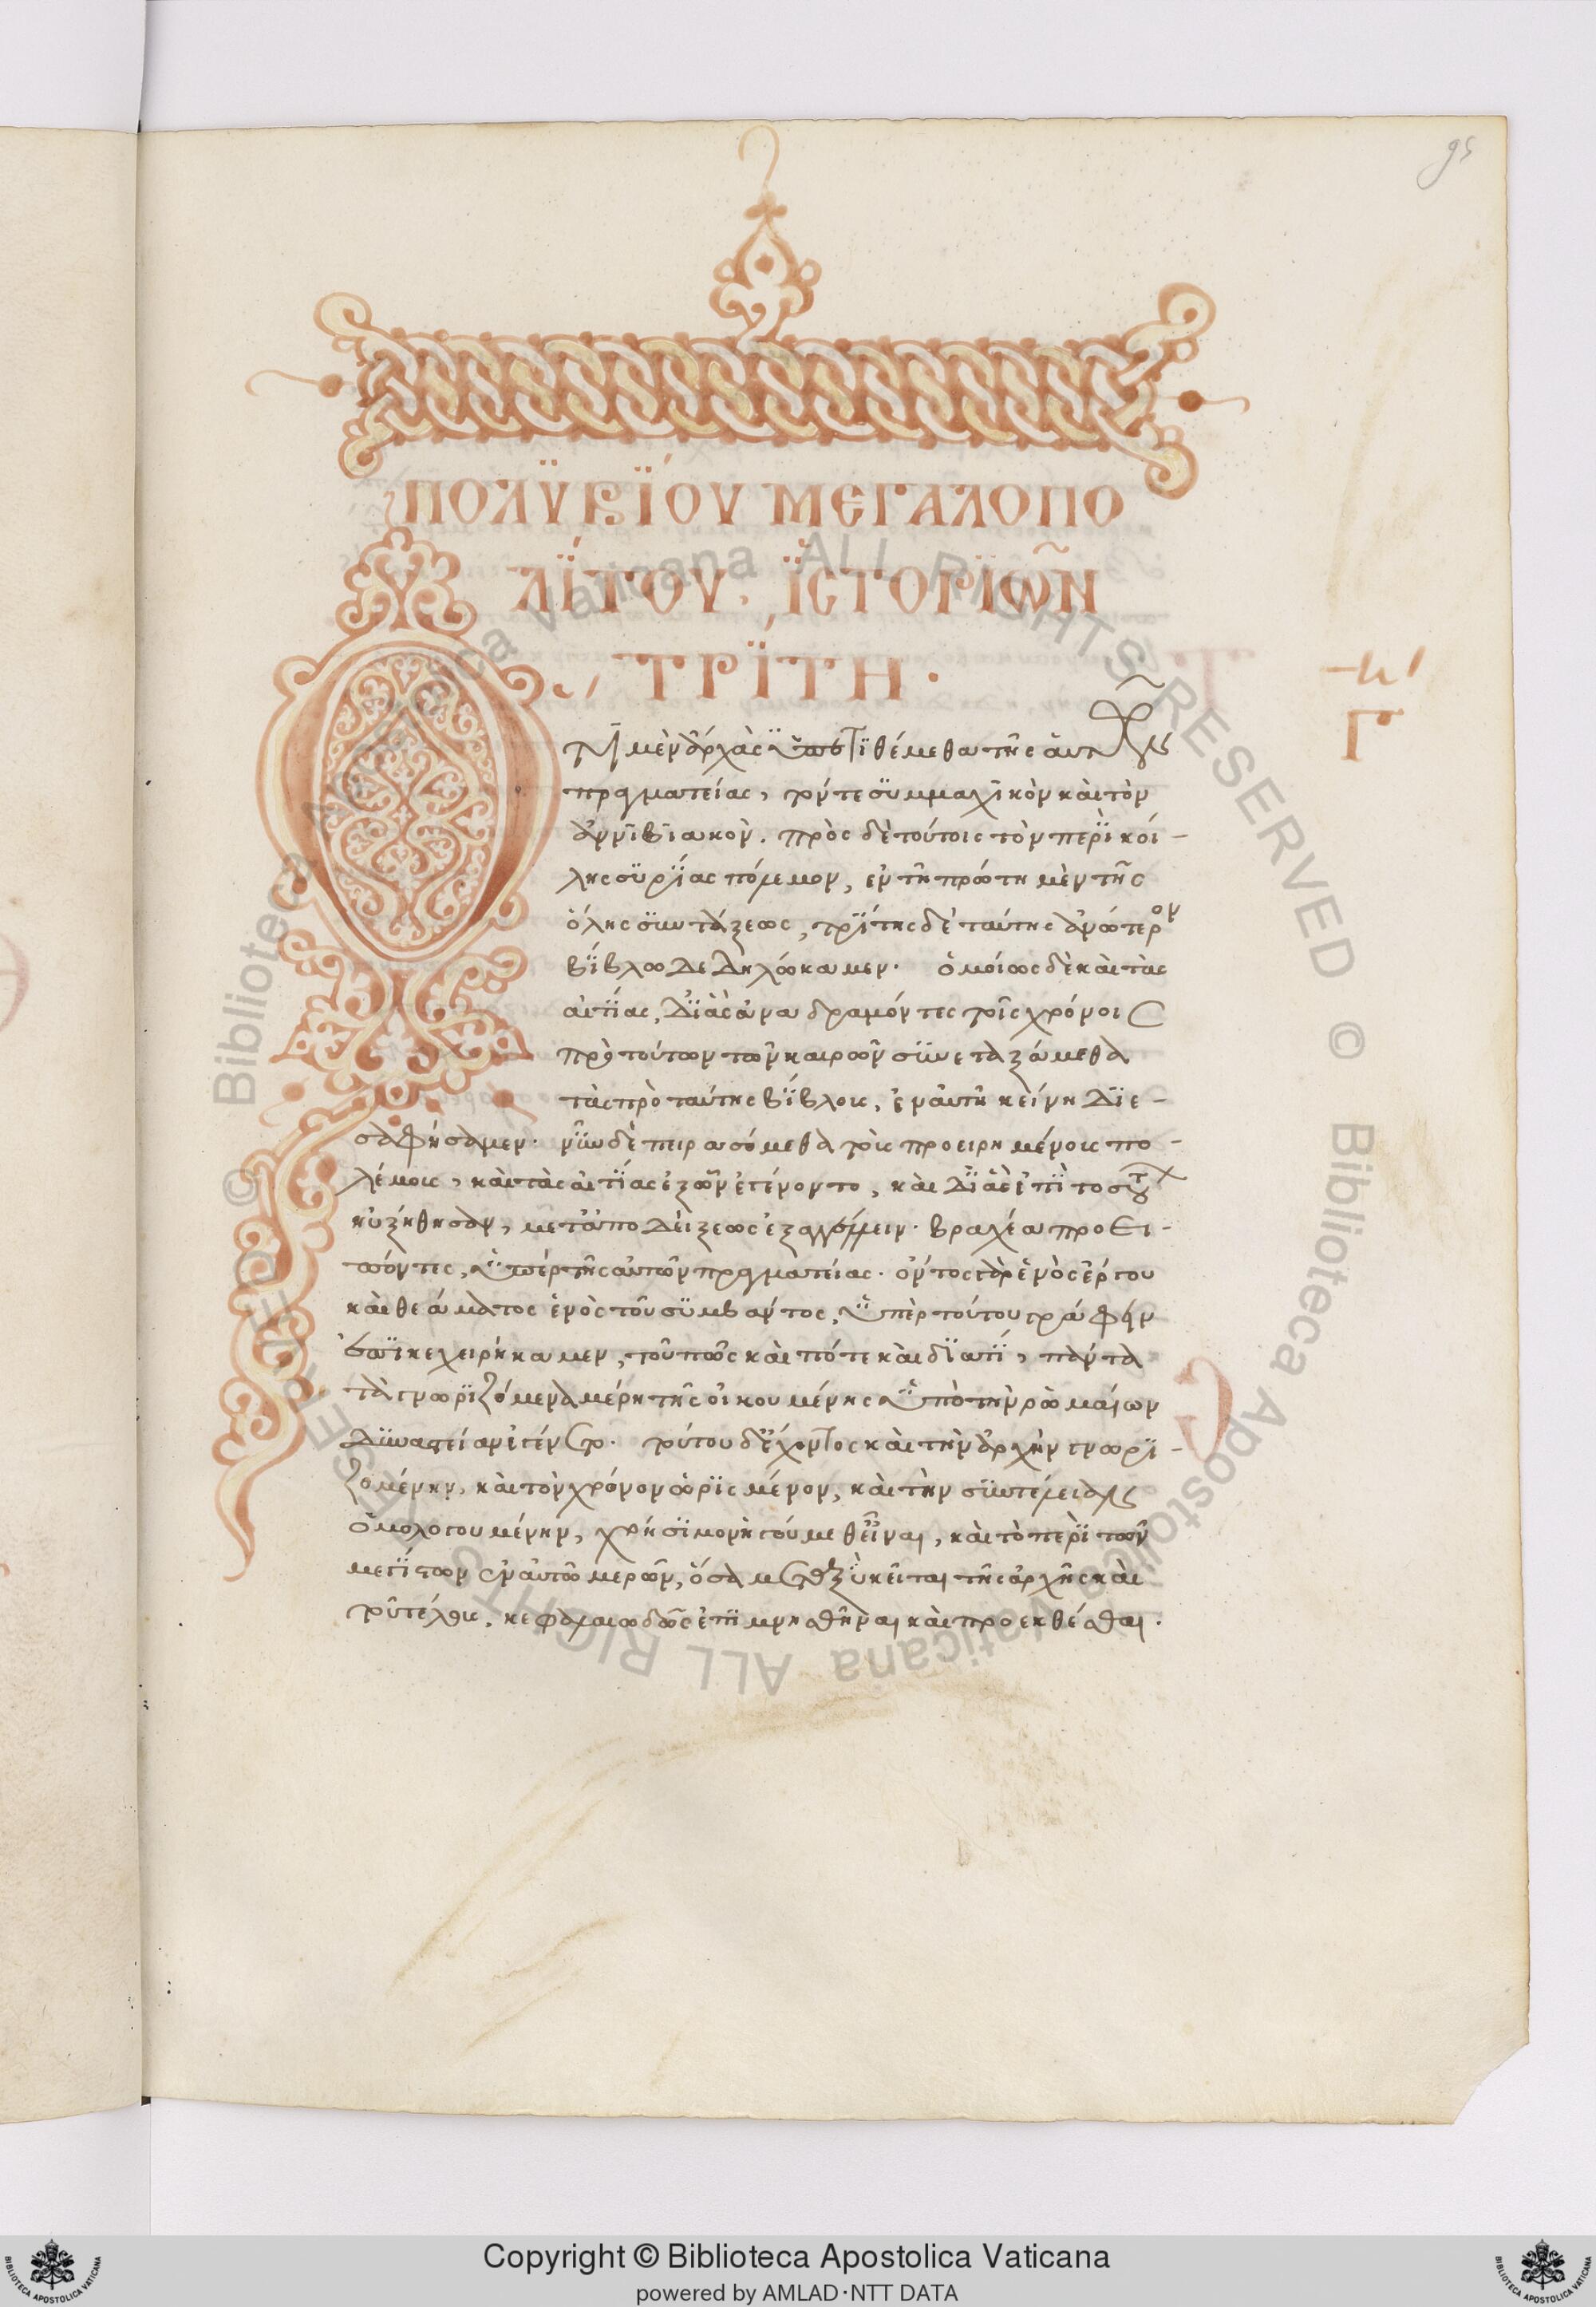 95
ΠΟΛΥΒΙΟΥ ΜΕΓΑΛΟΠΟ
ΛΙΤΟΥ · ΙΣΤΟΡΙΩΝ
ΤΡΙΤΗ ·
Γ
Ὅτι μὲν ἀρχὰς ὑποτιθέμεθα τῆς αὑτῶν
πραγματείας, τόν τε συμμαχικὸν καὶ τὸν
ἀννιβιακὸν. πρὸς δὲ τούτοις τὸν περὶ κοί-
λης συρίας πόλεμον, ἐν τῇ πρώτη μὲν τῆς
ὅλης συντάξεως, τρίτης δὲ ταύτης ἀνώτερον
βίβλω δεδηλώκαμεν. ὁμοίως δὲ καὶ τὰς
αἰτίας, δι ἃς ἀναδραμόντες τοῖς χρόνοις
πρὸ τούτων τῶν καιρῶν συνεταξάμεθα
τὰς πρὸ ταύτης βίβλοις, ἐν αὐτῇ κείνη διε-
σαφήσαμεν. νῦν δὲ πειρασόμεθα τοῖς προειρημένοις πο-
λέμοις, καὶ τὰς αἰτίας ἐξ ὧν ἐγένοντο, καὶ δι ἃς ἐπὶ τοσοῦτ
ηὐξήθησαν, μετ ἀποδείξεως ἐξαγγέλλειν. βραχέα προει-
πόντες, ὑπὲρ τῆς αὑτῶν πραγματείας. ὄντος γὰρ ἑνὸς ἔργου
καὶ θεάματος ἑνὸς τοῦ σύμβαντος, ὑπὲρ τούτου γράφειν
ἐπικεχειρήκαμεν, τοῦ πῶς καὶ πότε καὶ διατί, πάντα
τὰ γνωριζόμενα μέρη τῆς οἰκουμένης ὑπὸ τὴν ῥωμαίων
δυναστείαν ἐγένετο. τούτου δ ἔχοντος καὶ τὴν ἀρχὴν γνωρι-
ζομένην, καὶ τὸν χρόνον ὡρισμένον, καὶ τὴν συντέλειαν
ὁμολογουμένην, χρήσιμον ἡγούμεθ εἶναι, καὶ τὸ περὶ τῶν
μεγίστων ἐν αὐτῶ μερῶν, ὅσα μεταξὺ κεῖται τῆς ἀρχῆς καὶ
τοῦ τέλους, κεφαλαιωδῶς ἐπιμνησθῆναι καὶ προεκθέσθαι.
© Biblioteca Apostolica Vaticana ALL RIGHTS RESERVED
Copyright © Biblioteca Apostolica Vaticana
powered by AMLAD·NTT DATA
BIBLIOTECA APOSTOLICA VATICANA
BIBLIOTECA APOSTOLICA VATICANA